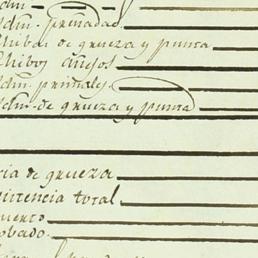 Ydm.
Ydm. preñadas
Chibos de grueza y punta
Chibos añejos
Ydm. primales
Ydm. de grueza y punta
ria de grueza
sistencia total
umento
robado